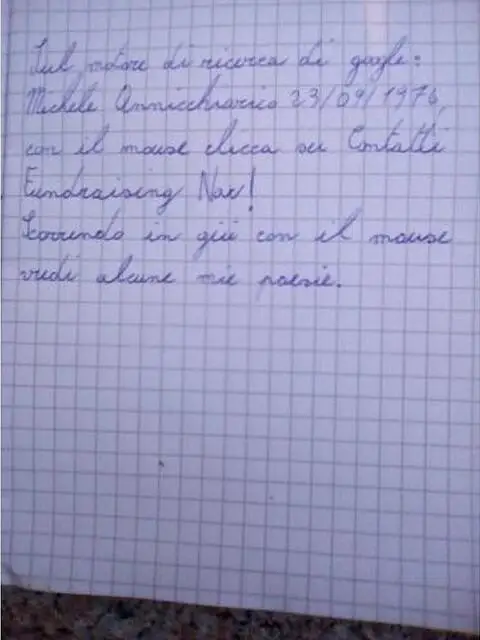 Sul motore di ricerca di google:
Michele Annicchiarico 23/09/1976,
con il mouse clicca su Contatti
Fundraising Now!
Scorrendo in giù con il mouse
vedi alcune mie poesie.